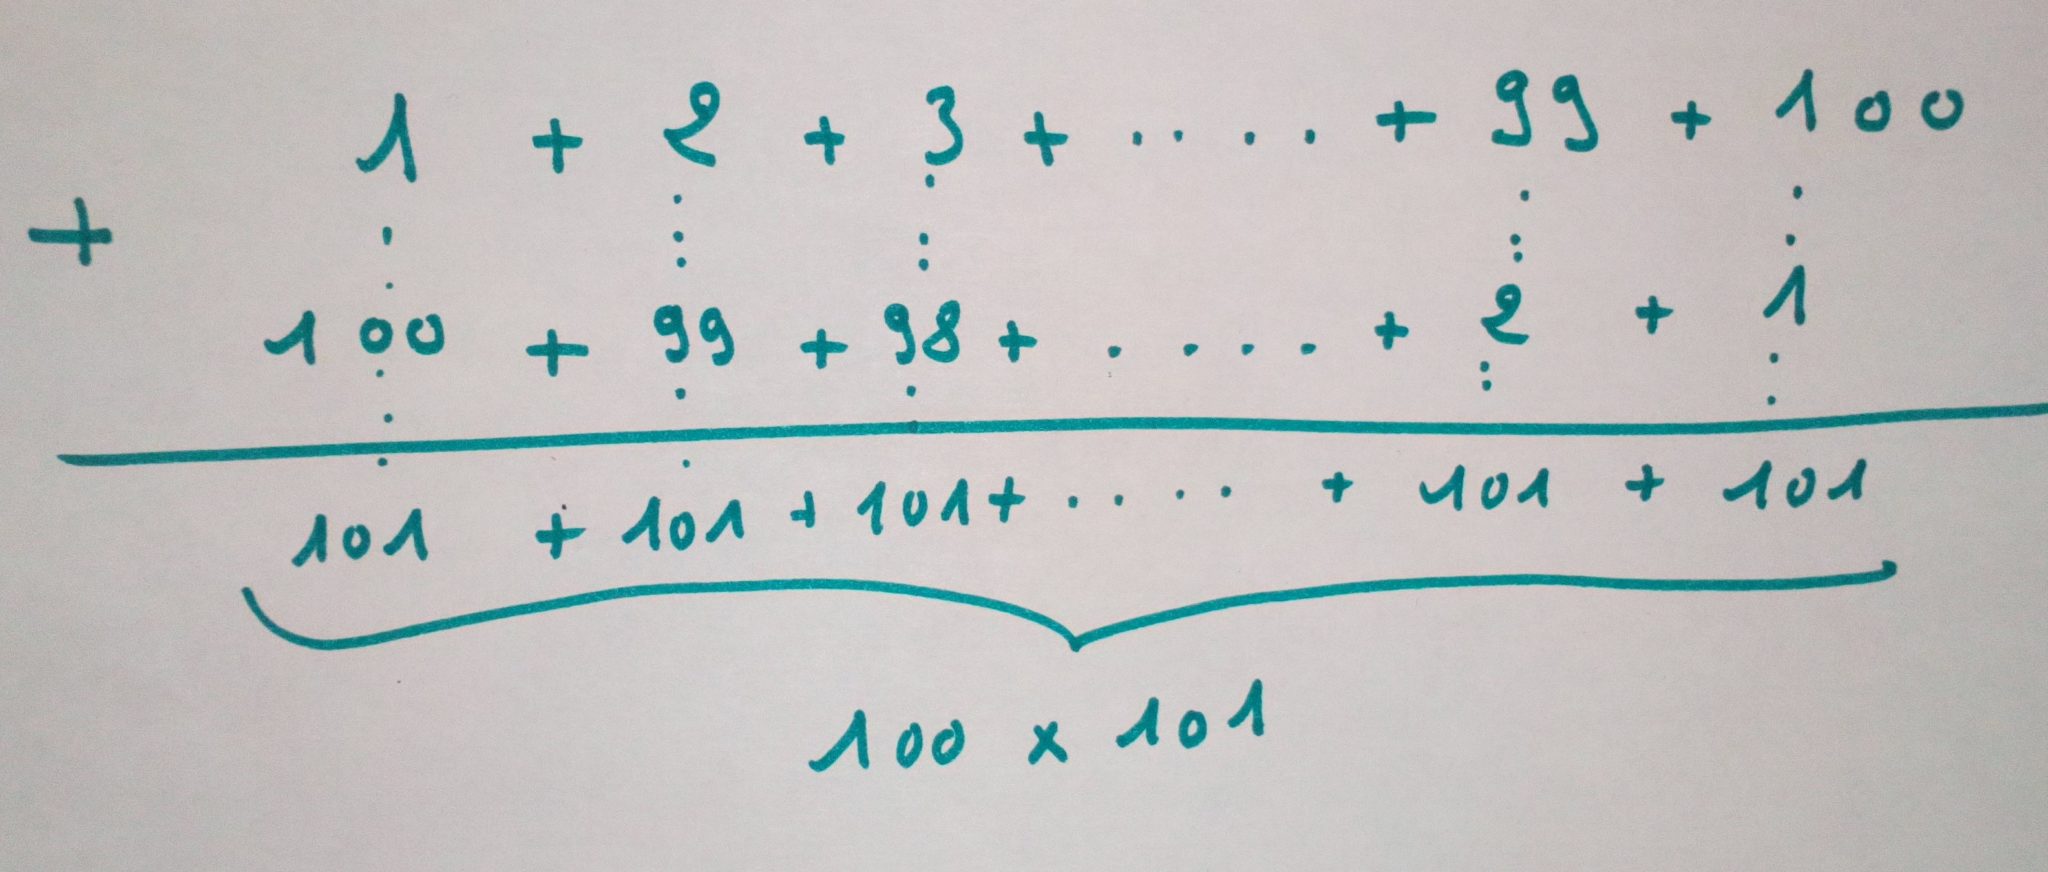 1 + 2 + 3 + ..... + 99 + 100
+
100 + 99 + 98 + ..... + 2 + 1
101 + 101 + 101 + ..... + 101 + 101
100 x 101